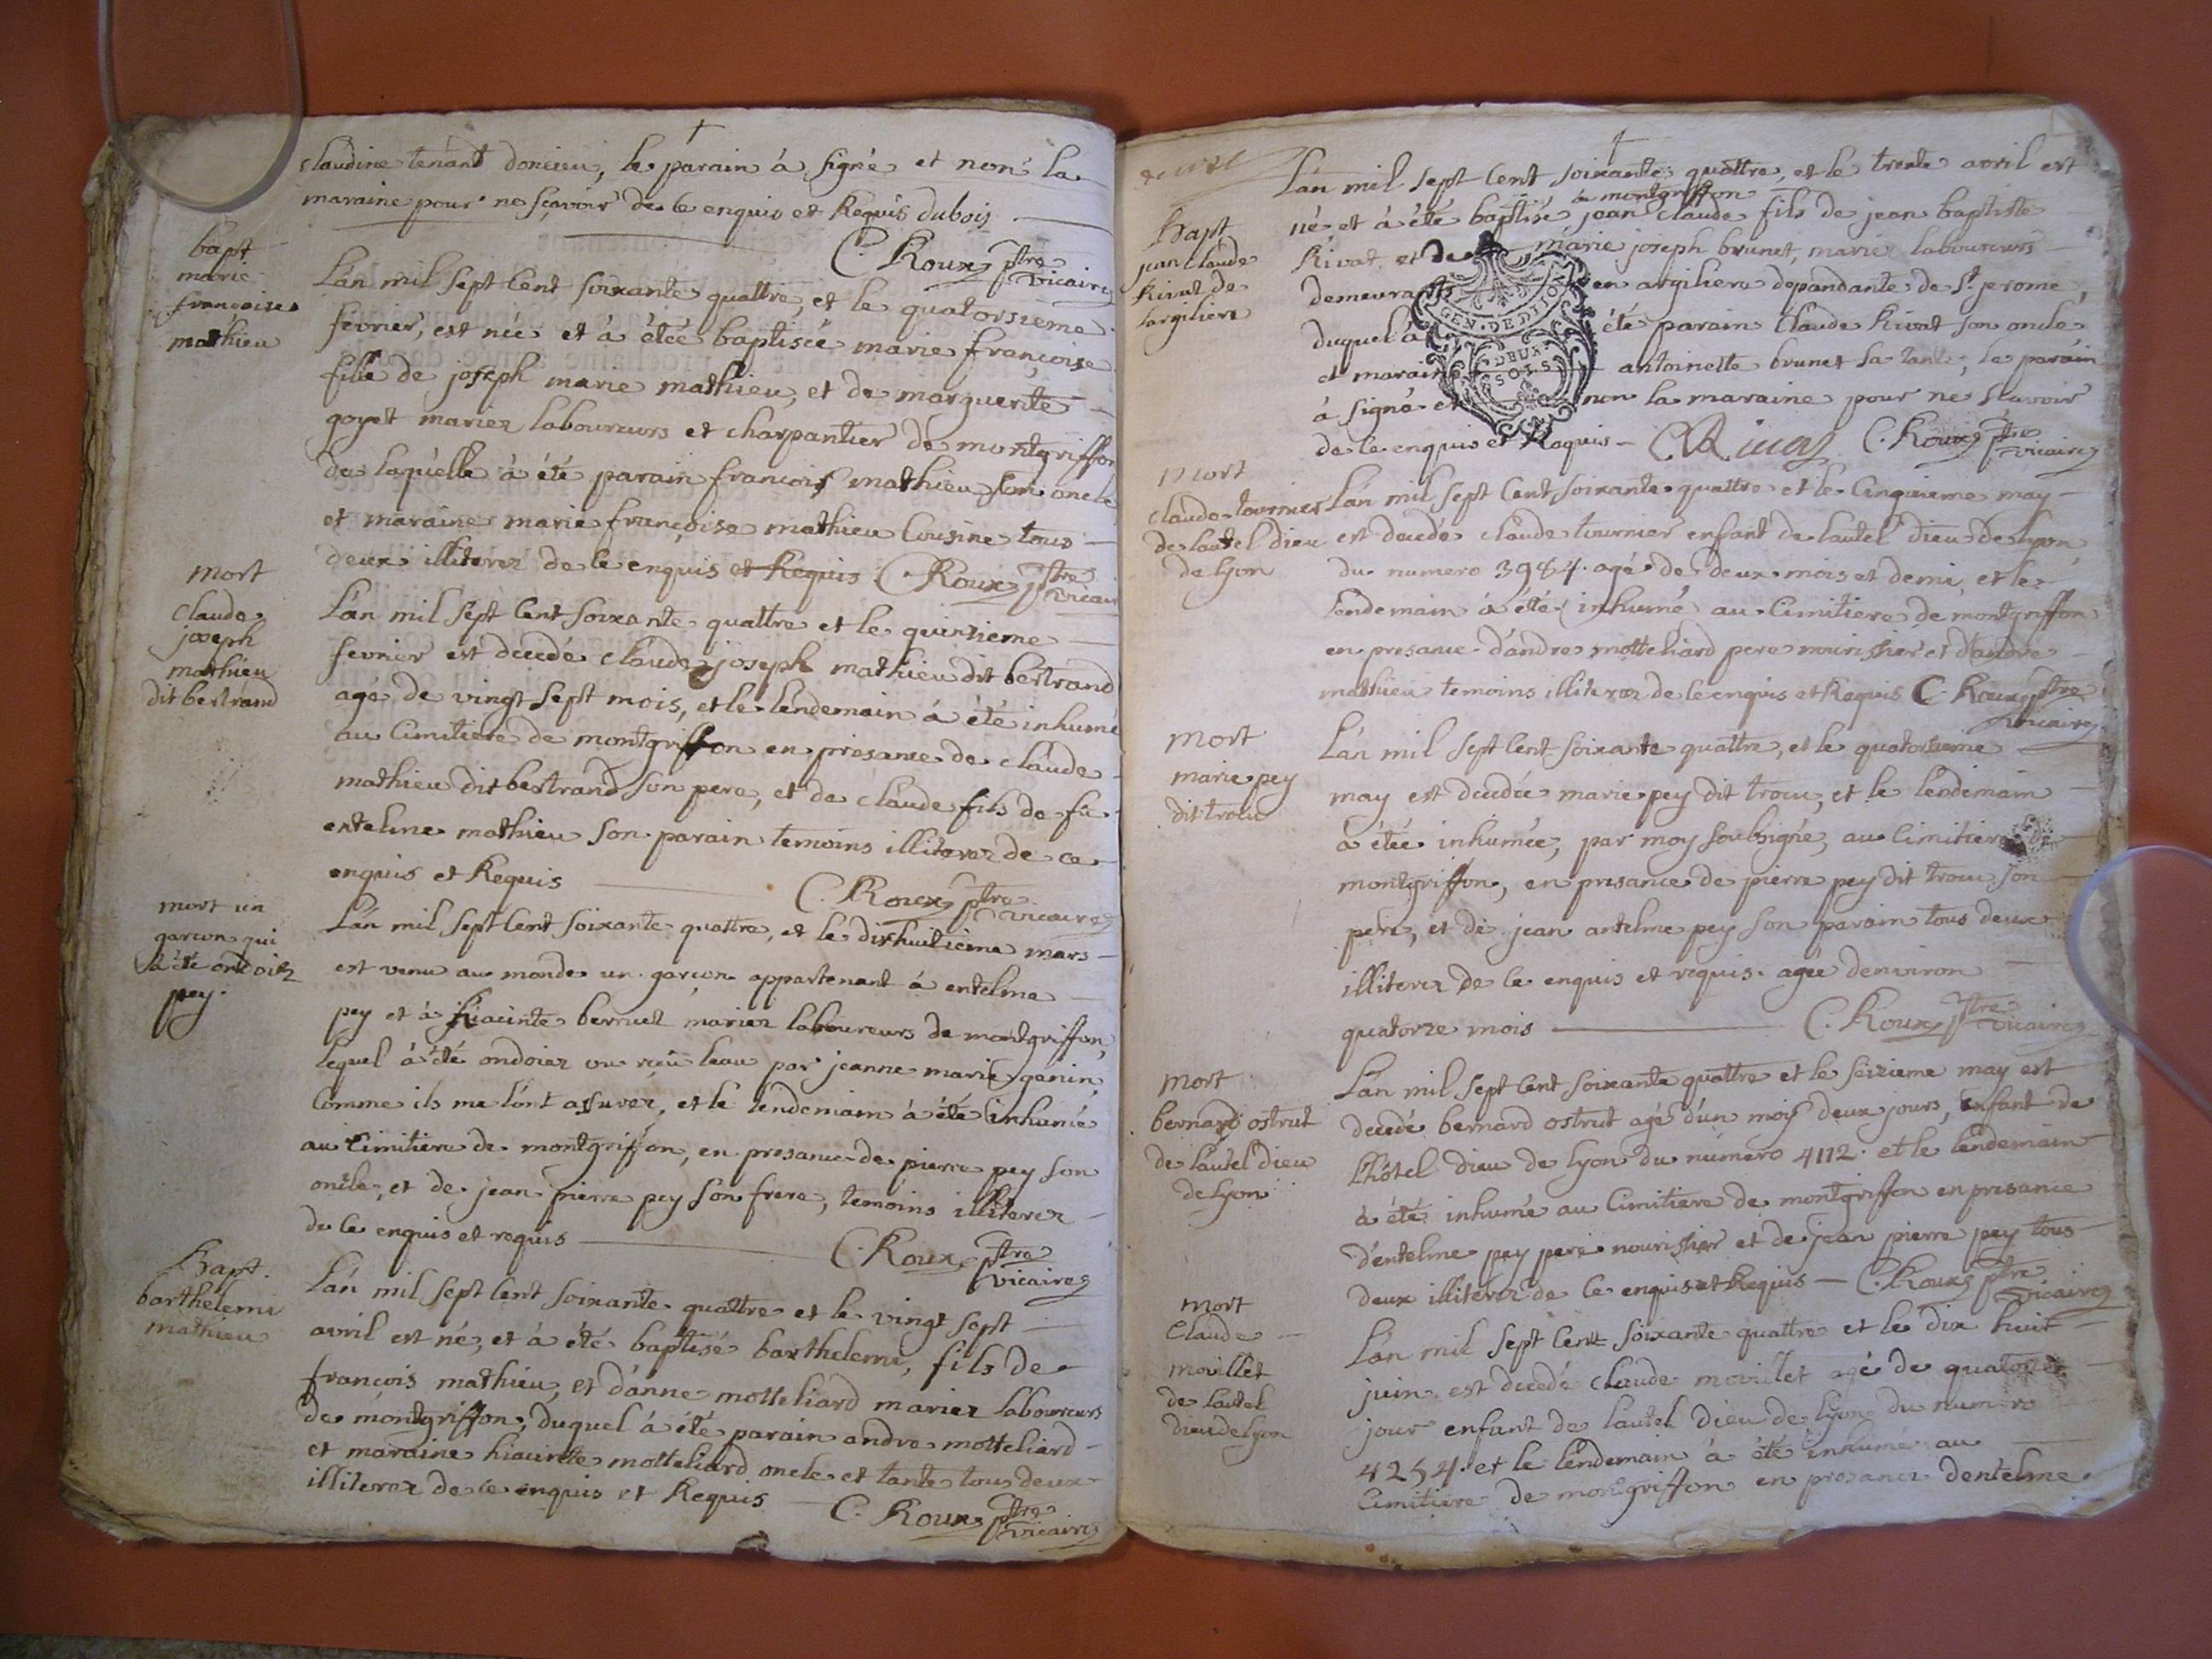 claudine tenant doncieu, le parain à signé et non la
maraine pour ne sçavoir de ce enquis et Requis dubois
C. Roux ptre vicaire
bapt
marie
françoise
mathieu
Lán mil sept Cent soixante quattre, et le quatorsieme
fevrier, est née et à étéé baptiséé marie françoise
fille de joseph marie mathieu, et de marguerite
goyet mariez laboureurs et charpantier de montgriffon
de laquelle à été parain francois mathieu son oncle
et maraine marie françoise mathieu Cousine tous
deux illiterez de ce enquis et Requis C. Roux ptre vicaire
mort
claude
joseph
mathieu
dit bertrand
Lán mil sept Cent soixante quattre et le quinzieme
fevrier est décédé claude joseph mathieu dit bertrand
agé de vingt sept mois, et le lendemain à été inhumé
au Cimitiere de montgriffon en presance de claude
mathieu dit bertrand son pere, et de claude fils de fû
entelme mathieu son parain temoins illiterez de ce
enquis et Requis C. Roux ptre vicaire
mort un
garcon qui
à été ondoiez
pey.
Lán mil sept Cent soixante quattre, et le dixhuitieme mars
est venu au monde un garçon appartenant à entelme
pey et à hiacinte berruet mariez laboureurs de montgriffon,
lequel à été ondoiez ou reçû leau par jeanne marie genin,
Comme ils me lónt assurez, et le lendemain à été inhumé
au Cimitiere de montgriffon, en presance de pierre pey son
oncle, et de jean pierre pey son frere, temoins illiterez
de ce enquis et requis C. Roux ptre vicaire
Bapt.
barthelemi
mathieu
Lán mil sept Cent soixante quattre et le vingt sept
avril est né, et à été baptisé barthelemi, fils de
françois mathieu, et dánne motteliard mariez laboureurs
de montgriffon, duquel á été parain andre motteliard
et maraine hiacinte motteliard oncle et tante tous deux
illiterez de ce enquis et Requis C. Roux ptre vicaire
Lán mil sept Cent soixante quattre, et le trente avril est
à montgriffon
né et à été baptisé jean claude fils de jean baptiste
Bapt
jean claude
Rivat de
largiliere
Rivat et de marie joseph brunet, mariez laboureurs
demeurants en argiliere depandante de St jerome,
duquel à été parain Claude Rivat son oncle
et maraine antoinette brunet sa tante, le parain
à signé et non la maraine pour ne scavoir
de ce enquis et Requis C. Roux ptre vicaire
GEN. DE DIJON
DEUX
SOLS
mort
claude tournier
de lautel dieu
de lyon
Lán mil sept Cent soixante quattre et le Cinquieme may
est decedé claude tournier enfant de lautel dieu de lyon
du numero 3984. agé de deux mois et demi, et le
lendemain à été inhumé au Cimitiere de montgriffon
en presance dándre motteliard pere nourissier et dándre
mathieu temoins illiterez de ce enquis et Requis C. Roux ptre
vicaire
mort
marie pey
dit trou
Lán mil sept Cent soixante quattre, et le quatorsieme
may est decedée marie pey dit trou, et le lendemain
à étéé inhuméé, par moy soubsigné, au Cimitiere de
montgriffon, en presance de pierre pey dit trou son
pere, et de jean antelme pey son parain tous deux
illiterez de ce enquis et requis. agée denviron
quatorze mois C. Roux ptre vicaire
mort
bernard ostrut
de lautel dieu
de lyon
Lán mil sept Cent soixante quattre et le seizieme may est
decedé bernard ostrut agé dún mois deux jours, enfant de
Lhôtel dieu de lyon du numéro 4112. et le lendemain
à été inhumé au Cimitiere de montgriffon en presance
dentelme pey pere nourissier et de jean pierre pey tous
deux illiterez de ce enquis et Requis C. Roux ptre vicaire
mort
Claude
movillet
de lautel
dieu de lyon
Lán mil sept Cent soixante quattre et le dix huit
juin est decedé claude movillet agé de quatorze
jour enfant de lautel dieu de lyon du numero
4254. et le lendemain à été inhumé au
Cimitiere de montgriffon en presance dentelme